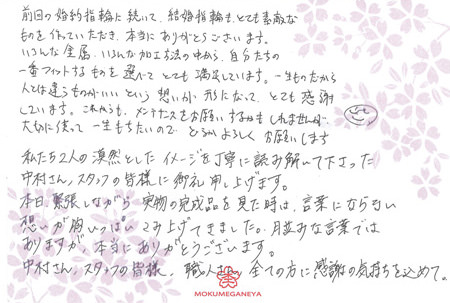 前回の婚約指輪に続いて、結婚指輪も、とても素敵な
ものを作っていただき、本当にありがとうございます。
いろんな金属、いろんな加工方法の中から、自分たちの
一番フィットするものを選べて とても満足しています。一生ものだから
人とは違うものがいい という 想いが 形になって、とても 感謝
しています。これからも、メンテナンスをお願いするかもしれませんが、
大切に使って 一生もちたいので どうぞ よろしく お願いします
私たち2人の漠然とした イメージを丁寧に読み解いて下さった
中村さん、スタッフの皆様に御礼申し上げます。
本日、緊張しながら 実物の完成品を見た時は、言葉にならない
想いが胸いっぱいこみ上げてきました。月並みな言葉では
ありますが、本当にありがとうございます。
中村さん、スタッフの皆様、職人さん、全ての方に感謝の気持ちを込めて。
MOKUMEGANEYA